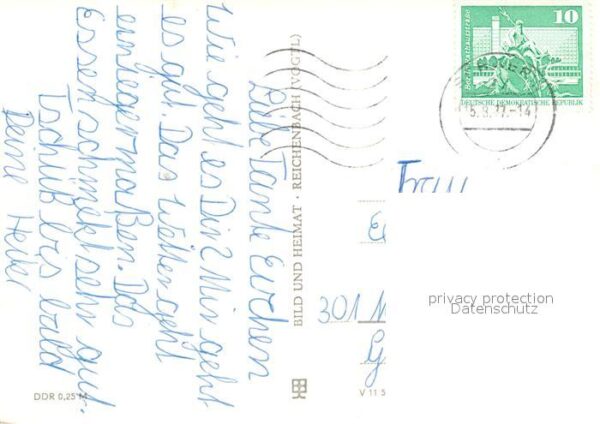 Liebe Tante Evchen
Wie geht es Dir? Mir geht
es gut. Das Wetter geht
einiegermaßen. Das
Essen schmekt sehr gut.
Tschüß bis bald
Deine
BILD UND HEIMAT · REICHENBACH (VOGTL)
DDR 0,25 M
V 11 5
10
DEUTSCHE DEMOKRATISCHE REPUBLIK
Frau
301
privacy protection
Datenschutz